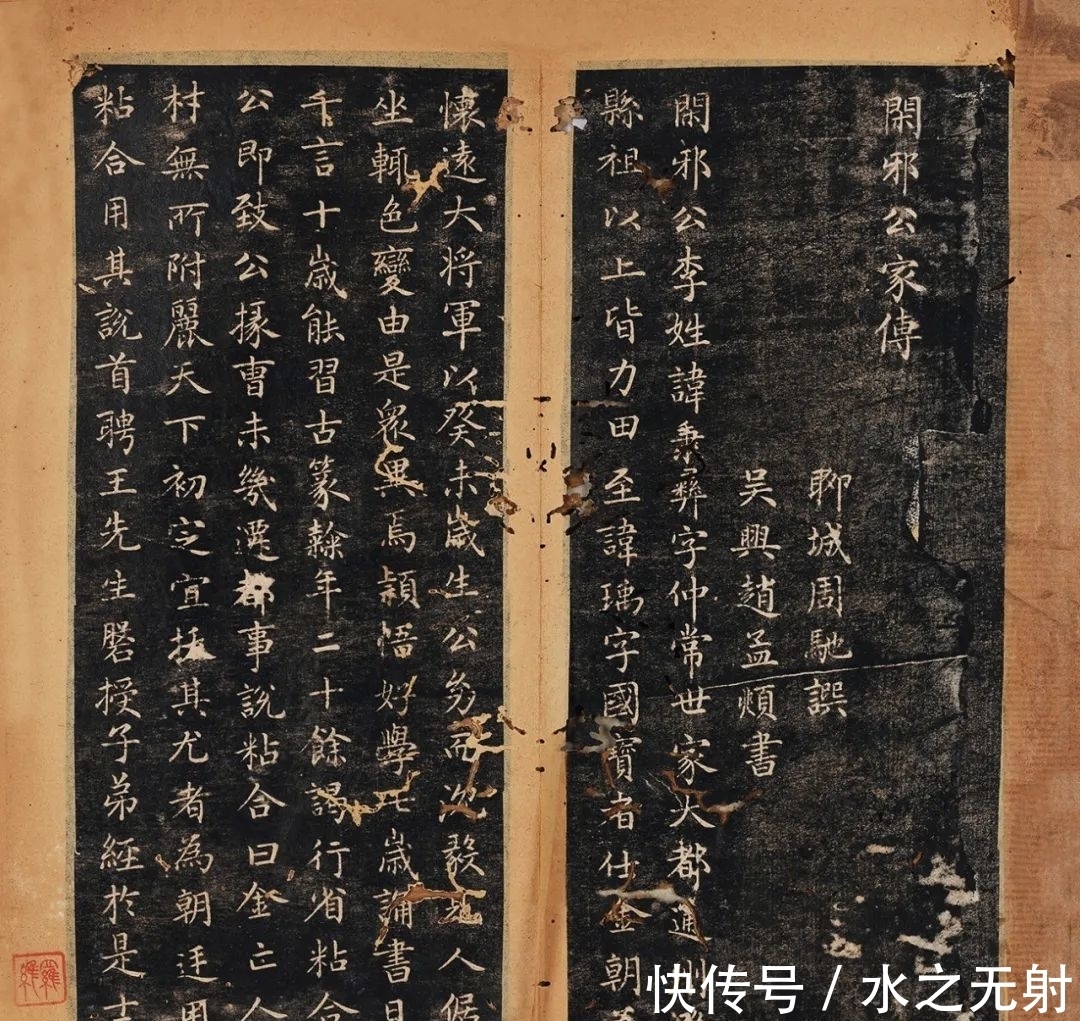 閑邪公家傳
聊城周馳譔
吴興趙孟頫書
閑邪公李姓諱秉彝字仲常世家大都通
縣祖以上皆力田至諱瑀字國寶者仕金朝
懷遠大将軍以癸未歲生公㓜而次毅
人
坐輒色變由是衆異焉穎悟好學七歲誦書日
千言十歲能習古篆隸年二十餘謁行省粘合
公即致公掾曺未幾遷都事説粘合曰金亡人
材無所附麗天下初定宜拔其尤者為朝廷用
粘合用其説首聘王先生磐授子弟經於是士
快传号 / 水之无射